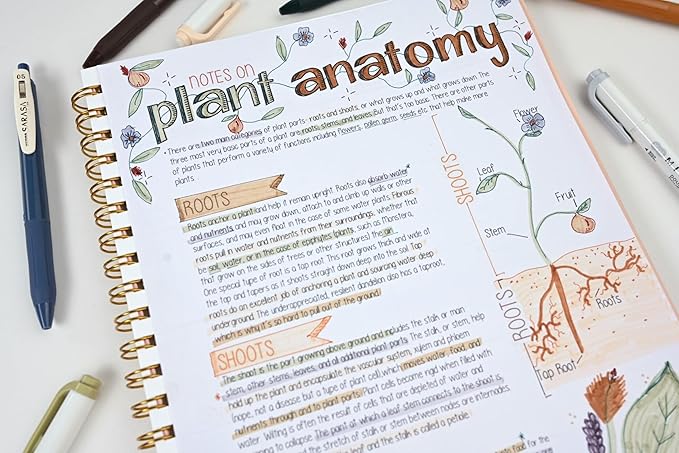 NOTES ON
plant anatomy
• There are two main categories of plant parts- roots and shoots, or what grows up and what grows down. The
three most very basic parts of a plant are roots, stems, and leaves. But that's too basic. There are other parts
of plants that perform a variety of functions including flowers, pollen, germ, seeds etc that help make more
plants.
ROOTS
Roots anchor a plant and help it remain upright. Roots also absorb water
and nutrients and may grow down, attach to and climb up walls or other
surfaces, and may even float in the case of some water plants. Fibrous
roots pull in water and nutrients from their surroundings, whether that
be soil, water, or in the case of epiphytes (plants, such as monstera,
that grow on the sides of trees or other structures) the air.
One special type of root is a tap root. This root grows thick and wide at
the top and tapers as it shoots straight down deep into the soil. Tap
roots do an excellent job of anchoring a plant and sourcing water deep
underground. The underappreciated, resilient dandelion also has a taproot,
which is why it's so hard to pull out of the ground.
SHOOTS
The shoot is the part growing above ground and includes the stalk or main
stem, other stems, leaves, and all additional plant parts. The stalk, or stem, help
hold up the plant and encapsulate the vascular system, xylem and phloem
(nope, not a disease but a type of plant cell) which moves water, food, and
nutrients through and to plant parts. Plant cells become rigid when filled with
water. Wilting is often the result of cells that are depleted of water and
going to collapse. The point at which a leaf stem connects to the shoot is
and the stretch of stalk or stem between nodes are internodes.
leaf and the stalk is called a petiole.
food for the
SHOOTS
Flower
Leaf
Fruit
Stem
ROOTS
Roots
Tap Root
0.5
SARASA